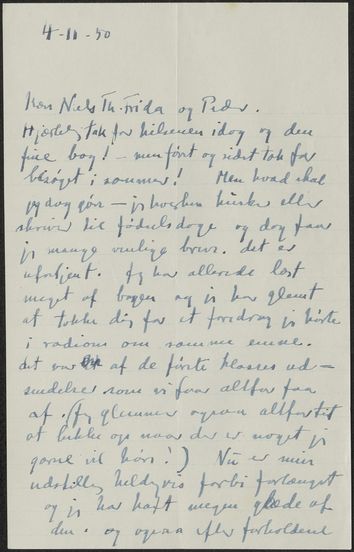 4-11-50
Kære Niels Th. Frida og Peder.
Hjertelig tak for hilsenen idag og den
fine bog! – men først og sidst tak for
besøget i sommer! Men hvad skal
jeg dog gøre – jeg hverken husker eller
skriver til fødselsdage og dog faar
jeg mange venlige breve. det er
ufortjent. Jeg har allerede læst
meget af bogen og jeg har glemt
at takke dig for et foredrag jeg hørte
i radioen om samme emne.
det var af de første klasses ud-
sendelser som vi faar altfor faa
af. (Jeg glemmer ogsaa altfor tit
at lukke op naar der er noget jeg
gerne vil høre!) Nu er min
udstilling heldigvis forbi forlænget
og jeg har haft megen glæde af
den. og ogsaa efter forholdene